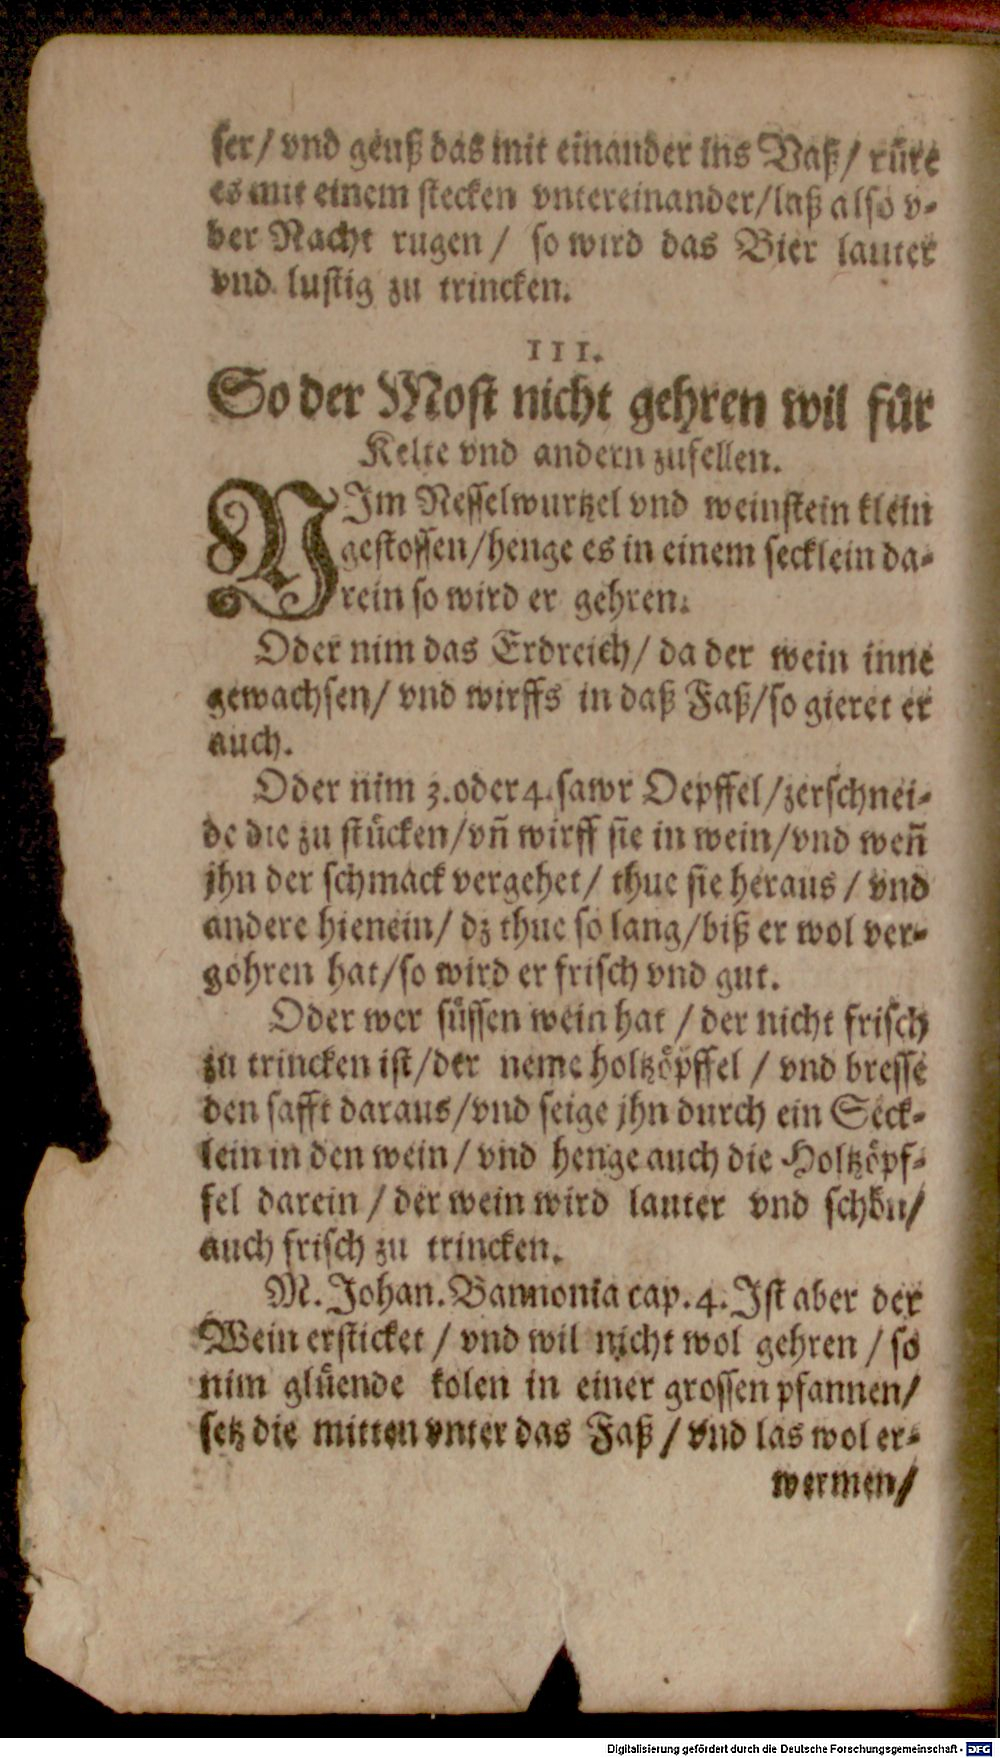 ser/ vnd geuß das mit einander ins Vaß/ rűre
es mit einem stecken vntereinander/laß also v-
ber Nacht rugen/ so wird das Bier lauter
vnd lustig zu trincken.
III.
So der Most nicht gehren wil fůr
Kelte vnd andern zufellen.
NIm Nesselwurtzel vnd weinstein klein
gestossen/henge es in einem secklein da-
rein so wird er gehren.
Oder nim das Erdreich/ da der wein inne
gewachsen/ vnd wirffs in daß Faß/so gieret er
auch.
Oder nim 3. oder 4. sawr Oepffel/zerschnei-
de die zu stůcken/vñ wirff sie in wein/vnd weñ
jhn der schmack vergehet/ thue sie heraus/ vnd
andere hienein/ dz thue so lang/biß er wol ver-
gohren hat/so wird er frisch vnd gut.
Oder wer sůssen wein hat / der nicht frisch
zu trincken ist/der neme holtzöpffel / vnd bresse
den safft daraus/vnd seige jhn durch ein Seck-
lein in den wein/ vnd henge auch die Holtzöpf-
fel darein / der wein wird lauter vnd schön/
auch frisch zu trincken.
M. Johan. Bannonia cap. 4. Ist aber der
Wein ersticket / vnd wil nicht wol gehren / so
nim glůende kolen in einer grossen pfannen/
setz die mitten vnter das Faß / vnd las wol er-
wermen/
Digitalisierung gefördert durch die Deutsche Forschungsgemeinschaft - DFG